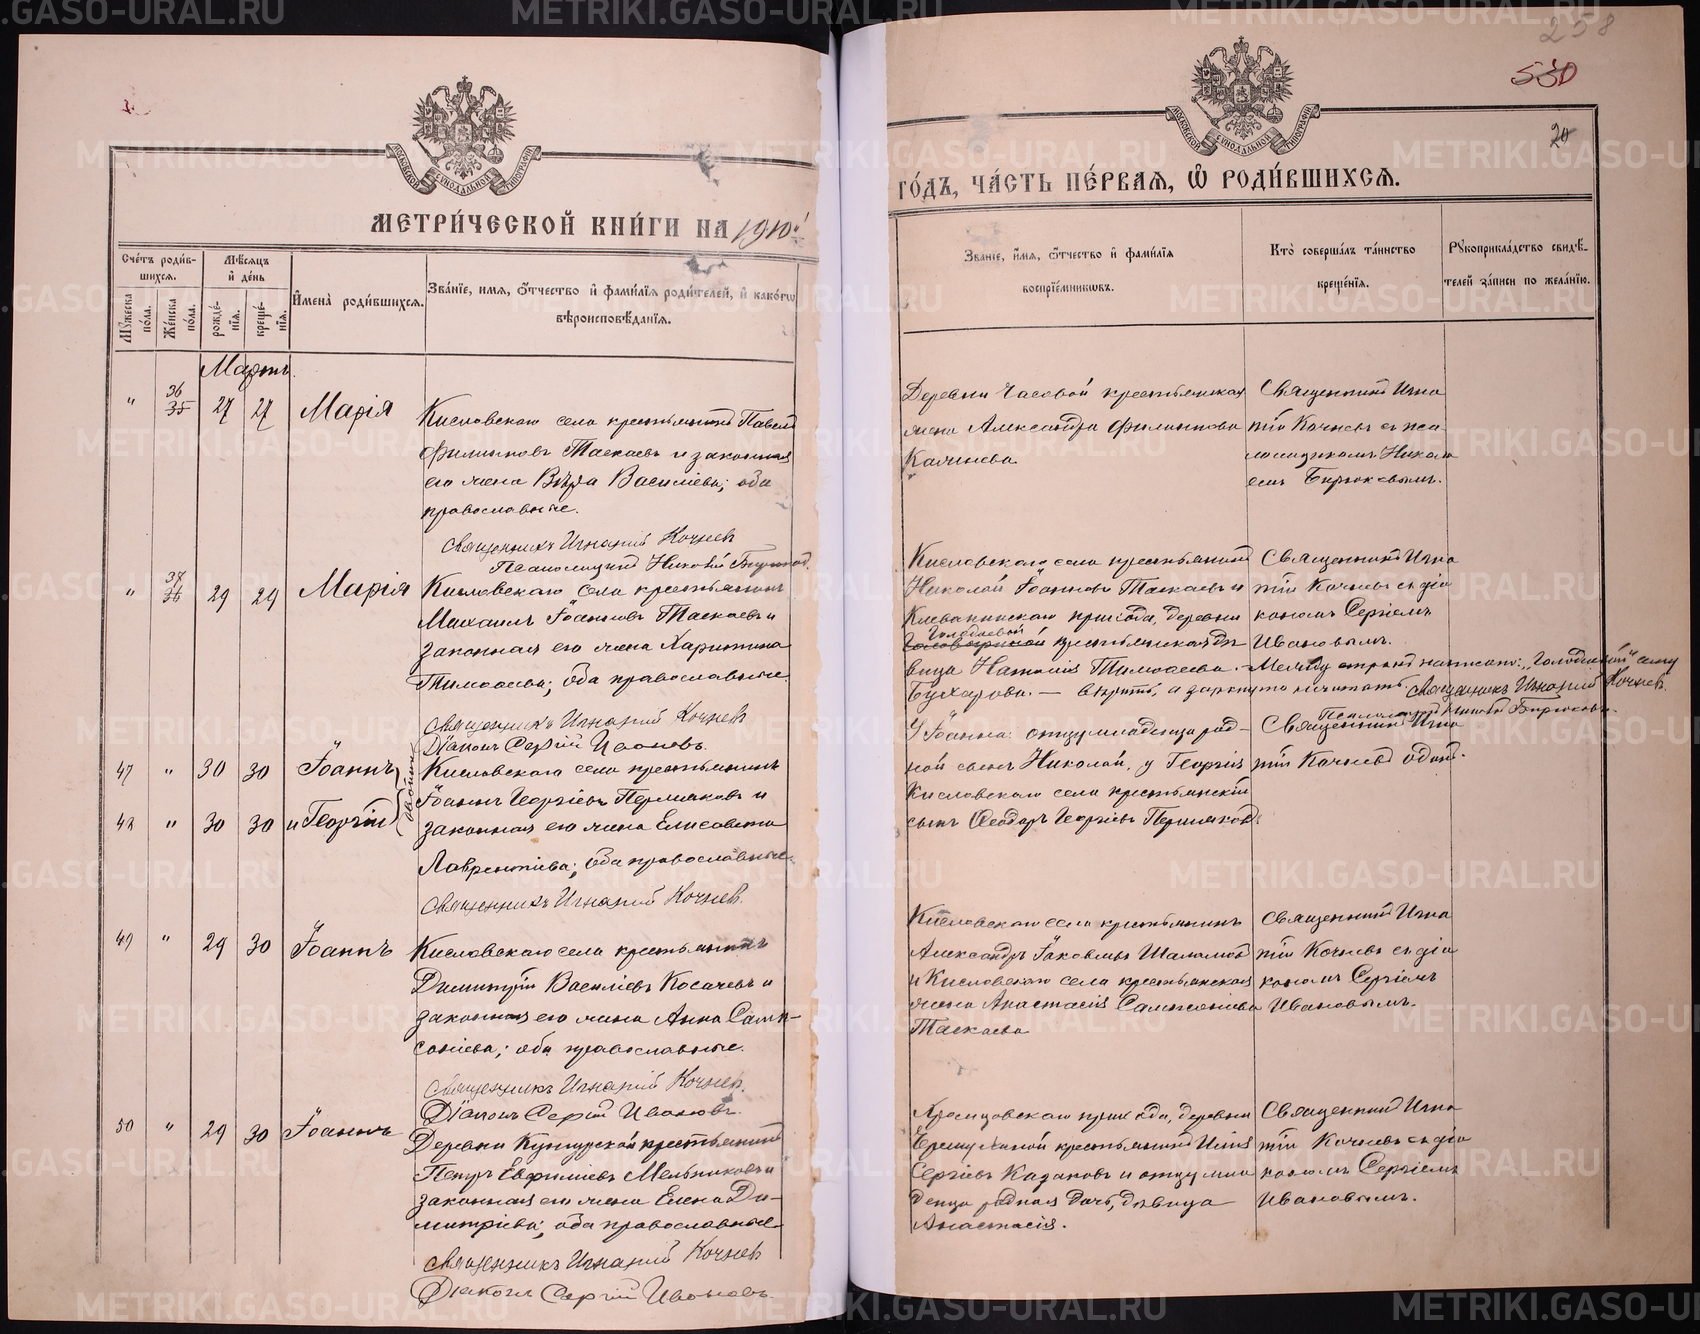 258
530
20
МОСКОВСКОЙ СѴНОДАЛЬНОЙ ТИПОГРАФІИ
МЕТРИ́ЧЕСКОЙ КНИ́ГИ НА 1910й
Сче́тъ роди́в-
шихся.
Мꙋжеска по́ла.
Же́нска по́ла.
Мѣ́сяцъ
и҆ де́нь
рожде́-
нїя.
креще́-
нїя.
И҆мена̀ роди́вшихся.
Зва́нїе, имя, ѻ҆́тчество и҆ фами́лїя роди́телей, и҆ како́гѡ
вѣроисповѣ́данїя.
Мартъ.
" 36 35 27 27 Марія
Кисловскаго села крестьянинъ Павелъ
Филиповъ Таскаевъ и законная
его жена Вѣра Василіева; оба
православные.
Священникъ Игнатій Кочнев
Псаломщикъ Николай Бирюков.
" 37 36 29 29 Марія
Кисловскаго села крестьянинъ
Михаилъ Іоанновъ Таскаевъ и
законная его жена Харитина
Тимоѳеева; оба православные.
Священникъ Игнатій Кочневъ
Діаконъ Сергій Ивановъ.
47 " 30 30 Іоаннъ
48 " 30 30 и Георгій
двойни
Кисловскаго села крестьянинъ
Іоаннъ Георгіевъ Пермяковъ и
законная его жена Елисавета
Лаврентіева; оба православные.
Священникъ Игнатій Кочнев.
49 " 29 30 Іоаннъ
Кисловскаго села крестьянинъ
Димитрій Василіевъ Косачевъ и
законная его жена Анна Самп-
соніева; оба православные.
Священникъ Игнатій Кочнев.
Діаконъ Сергій Ивановъ.
50 " 29 30 Іоаннъ
Деревни Кунгурской крестьянинъ
Петръ Евфиміевъ Мельниковъ и
законная его жена Елена Ди-
митріева; оба православные.
Священникъ Игнатій Кочневъ
Діаконъ Сергій Ивановъ.
МОСКОВСКОЙ СѴНОДАЛЬНОЙ ТИПОГРАФІИ
ГО́ДЪ, ЧА́СТЬ ПЕ́РВАЯ, Ѽ РОДИ́ВШИХСЯ.
Зва́нїе, и҆́мя, ѻ҆́тчество и҆ фами́лїя
воспрїе́мникѡвъ.
Кто̀ соверша́лъ та́инство
креще́нїя.
Рꙋкоприкла́дство свидѣ́-
телей за́писи по жела́нїю.
Деревни Часовой крестьянская
жена Александра Филиппова
Калинева
Священникъ Игна
тій Кочневъ съ пса
ломщикомъ Никола
емъ Бирюковымъ.
Кисловскаго села крестьянинъ
Николай Іоанновъ Таскаевъ и
Клевакинскаго прихода, деревни
Голодаевой
крестьянская дѣ-
вица Наталія Тимоѳеева
Бухарова. —
Священникъ Игна
тій Кочневъ съ діа
кономъ Сергіемъ
Ивановымъ.
Между строкъ написано: „Голодаевой" сему
вѣрить, а зачеркнутое не читать. Священникъ Игнатій Кочнев.
Псаломщикъ Николай Бирюковъ.
У Іоанна: отцу младенца род-
ной сынъ Николай, у Георгія
Кисловскаго села крестьянскій
сынъ Ѳеодоръ Георгіевъ Пермяковъ.
Священникъ Игна
тій Кочневъ одинъ.
Кисловскаго села крестьянинъ
Александръ Іаковлевъ Шаламов
и Кисловскаго села крестьянская
жена Анастасія Сампсоніева
Таскаева
Священникъ Игна
тій Кочневъ съ діа
кономъ Сергіемъ
Ивановымъ.
прихода, деревни
крестьянинъ Илія
Сергіевъ Казаковъ и отцу мла
денца родная дочь, дѣвица
Анастасія.
Священникъ Игна
тій Кочневъ съ діа
кономъ Сергіемъ
Ивановымъ.
METRIKI.GASO-URAL.RU